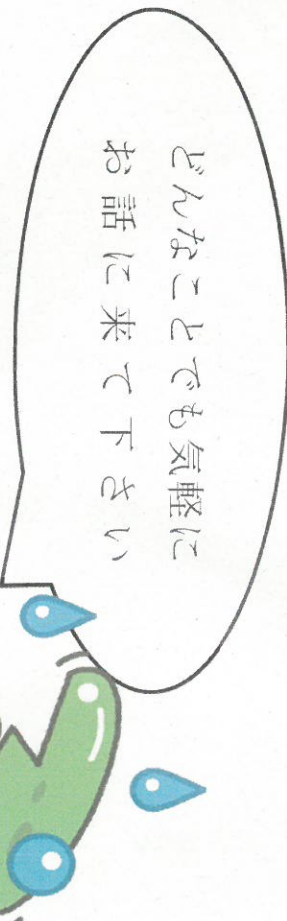 どんなことでも気軽に
お話に来て下さい